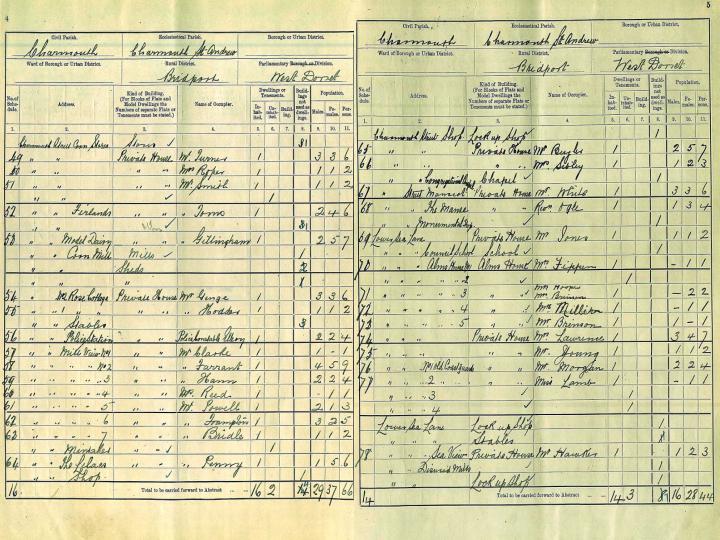 4
Civil Parish. Ecclesiastical Parish. Borough or Urban District.
Charmouth Charmouth St Andrew
Ward of Borough or Urban District. Rural District. Parliamentary Borough or Division.
Bridport West Dorset
No. of Schedule. Address. Kind of Building. (For Blocks of Flats and Model Dwellings the Numbers of separate Flats or Tenements must be stated.) Name of Occupier. Dwellings or Tenements. Inhabited. Uninhabited. Building. Buildings not used as dwellings. Population. Males. Females. Persons.
1. 2. 3. 4. 5. 6. 7. 8. 9. 10. 11.
Charmouth Street Corn Stores Stores ✓
49 " " Private House Mr Turner 1 3 3 6
50 " " " " Mrs Roper 1 1 1 2
51 " " " " Mr Smith 1 1 1 2
" " ✓ 1
52 " " Firlands " " Toms 1 2 4 6
53 " " Model Dairy " " Gillingham 1 2 5 7
" " Corn Mill Mills ✓ 1
" " Sheds 2
54 " No 2 Rose Cottage Private House Mr Genge 1 3 3 6
55 " " 1 " " " " " Hodder 1 1 1 2
" " Stables
56 " " Police Station " " 1 2 2 4
57 " " Mill View No 1 " " Mr Clarke 1 1 - 1
58 " " " " No 2 " " " Farrant 1 4 5 9
59 " " " " " 3 " " " Hann 1 2 2 4
60 " " " " " 4 " " Mr Reed 1 1 - 1
61 " " " " " 5 " " Mr Powell 1 2 1 3
62 " " " " " 6 " " " Frampton 1 3 2 5
63 " " " " " 7 " " " Bridle 1 1 1 2
" " ✓ 1
64 " " " " " Penny 1 1 5 6
" " Shop ✓ 1
16 Total to be carried forward to Abstract 16 2 14 29 37 66
5
Civil Parish. Ecclesiastical Parish. Borough or Urban District.
Charmouth Charmouth St Andrew
Ward of Borough or Urban District. Rural District. Parliamentary Borough or Division.
Bridport West Dorset
No. of Schedule. Address. Kind of Building. (For Blocks of Flats and Model Dwellings the Numbers of separate Flats or Tenements must be stated.) Name of Occupier. Dwellings or Tenements. Inhabited. Uninhabited. Building. Buildings not used as dwellings. Population. Males. Females. Persons.
1. 2. 3. 4. 5. 6. 7. 8. 9. 10. 11.
Charmouth Street Shop Lock up Shop ✓ 1
65 " " Private House Mr Bugler 1 2 5 7
66 " " " " Mrs Sibley 1 1 2 3
" " Congregational Chapel Chapel ✓ 1
67 " Street Private House Mr Whits 1 3 3 6
68 " " The Manse " " Revd Ogle 1 1 3 4
" " 1
69 Lower Sea Lane Private House Mr Jones 1 1 1 2
" " Council School School ✓ 1
70 " " Alms House No 1 Alms House Mrs Fippen 1 - 1 1
" " " " " 2 " " ✓ 1
71 " " " " " 3 " " Mrs Hooper 1 - 2 2
72 " " " " " 4 " " Mrs Milliken 1 - 1 1
73 " " " " " 5 " " Mr Brinson 1 - 1 1
74 " " Private House Mrs Lawrence 1 3 4 7
75 " " " " Mr Young 1 1 1 2
76 " " No 1 Old Coastguards " " Mr Morgan 1 2 2 4
77 " " " 2 " " " Miss Lamb 1 - 1 1
" " " 3 ✓ 1
" " " 4 ✓ 1
Lower Sea Lane Lock up Shop 1
" " Stables
78 " " Sea View Private House Mr Hawker 1 1 2 3
" " Disused Mills 1
" " Lock up Shop 1
14 Total to be carried forward to Abstract 14 3 8 16 28 44